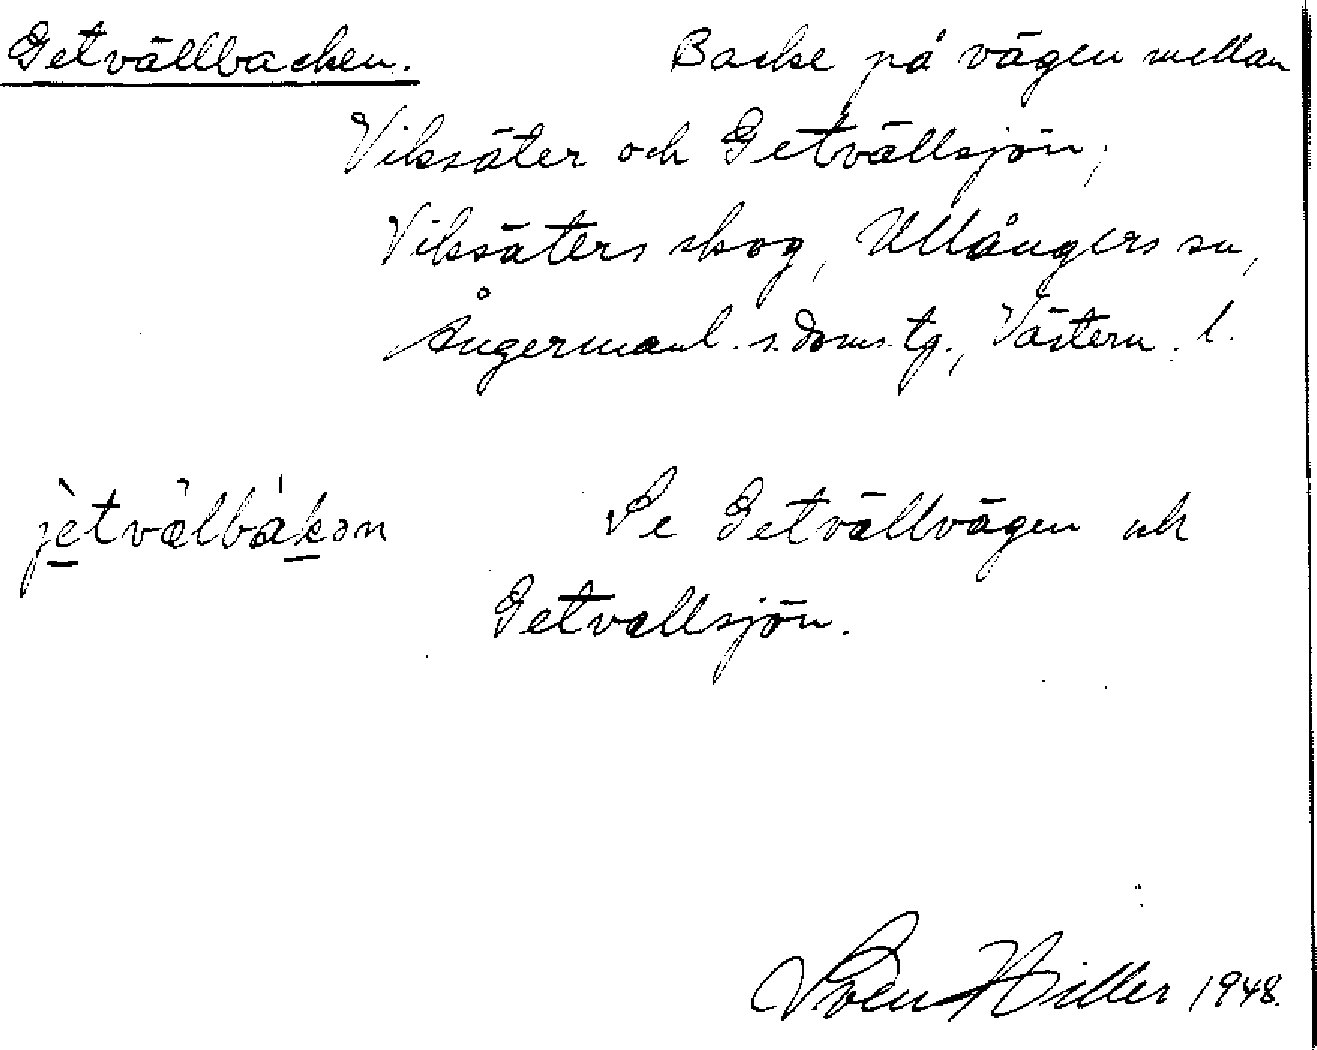 Getvällbacken. Backe på vägen mellan
Viksäter och Getvällsjön,
Viksäters skog, Ullångers sn,
Ångermanl. s. doms. tg., Västern. l.
jètvälbákon Se Getvällvägen och
Getvallsjön.
Sven Hiller 1948.